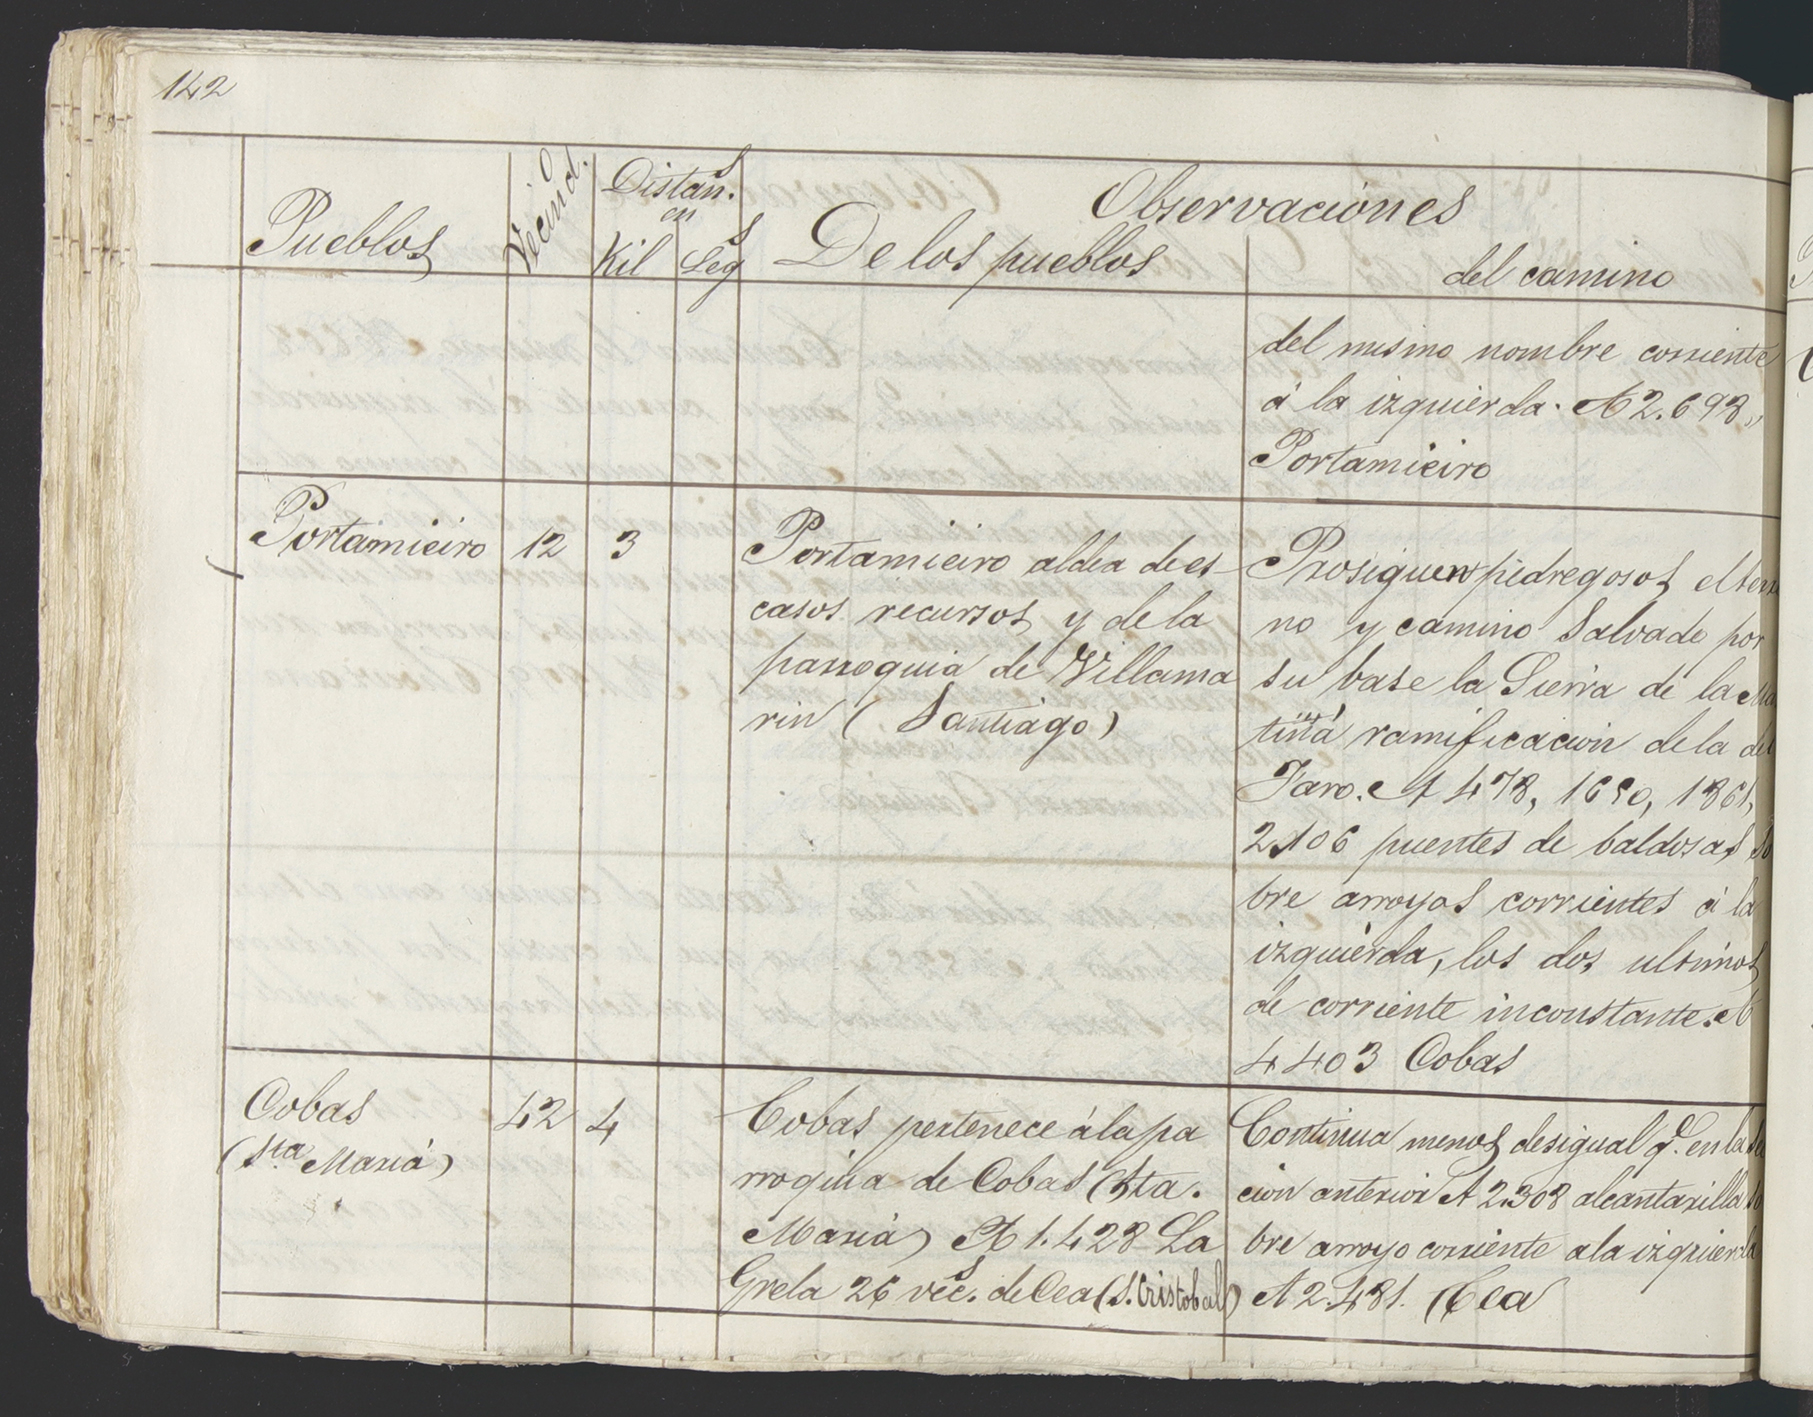 142
Pueblos
Vecind.
Distan.s
en
Kil
Leg.s
Observaciones
De los pueblos
del camino
del mismo nombre corriente
á la izquierda. A 2.698,,
Portamieiro
Portamieiro 12 3
Portamieiro aldea de es
casos recursos y de la
parroquia de Villama
rin (Santiago)
Prosiguen pedregosos el terre
no y camino Salvado por
su base la Sierra de la
ramificacion de la del
Faro. A 478, 1690, 1861,
2.106 puentes de baldosas so
bre arroyos corrientes á la
izquierda, los dos ultimos
de corriente inconstante. A
4403 Cobas
Cobas 42 4
(Sta Maria)
Cobas pertenece á la pa
rroquia de Cobas (Sta.
Maria) A 1.428 La
Grela 26 vec.s de Cea (S. Cristobal)
Continua menos desigual q.e en la sec
cion anterior A 2.308 alcantarilla so
bre arroyo corriente a la izquierda
A 2.481. Cea